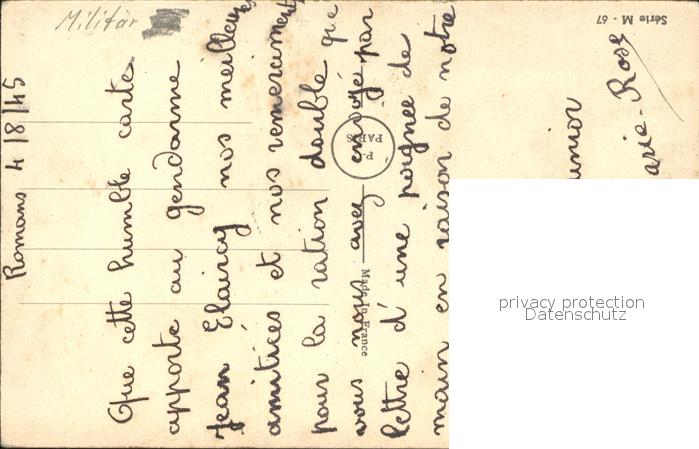 Militär
Romans 4/8/45
Que cette humble carte
apporte au gendarme
Jean nos meilleures
amitiées et nos remerciements
pour la ration double que
vous nous avez envoyé par
lettre d'une poignée de
main en raison de notre
unior
arie-Rose
Série M - 67
P-C
PARIS
Made in France
privacy protection
Datenschutz